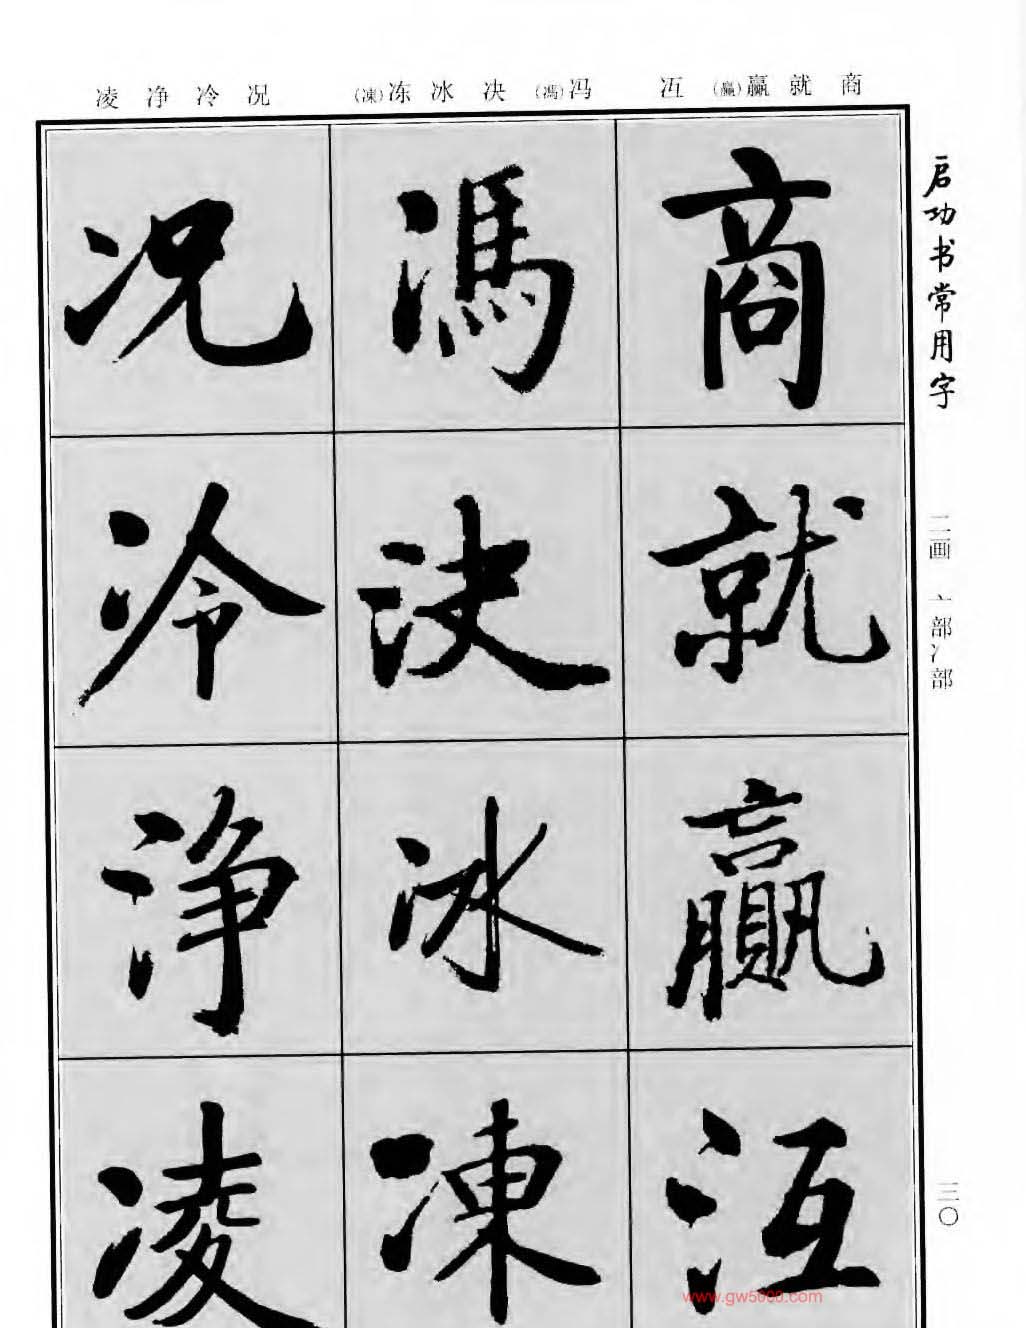 商 就 赢(贏) 冱 冯(馮) 决 冰 冻(凍) 况 冷 净 凌
启功书常用字
二画 亠部冫部
三〇
商就贏冱
馮决冰凍
况冷净凌
www.gw5000.com